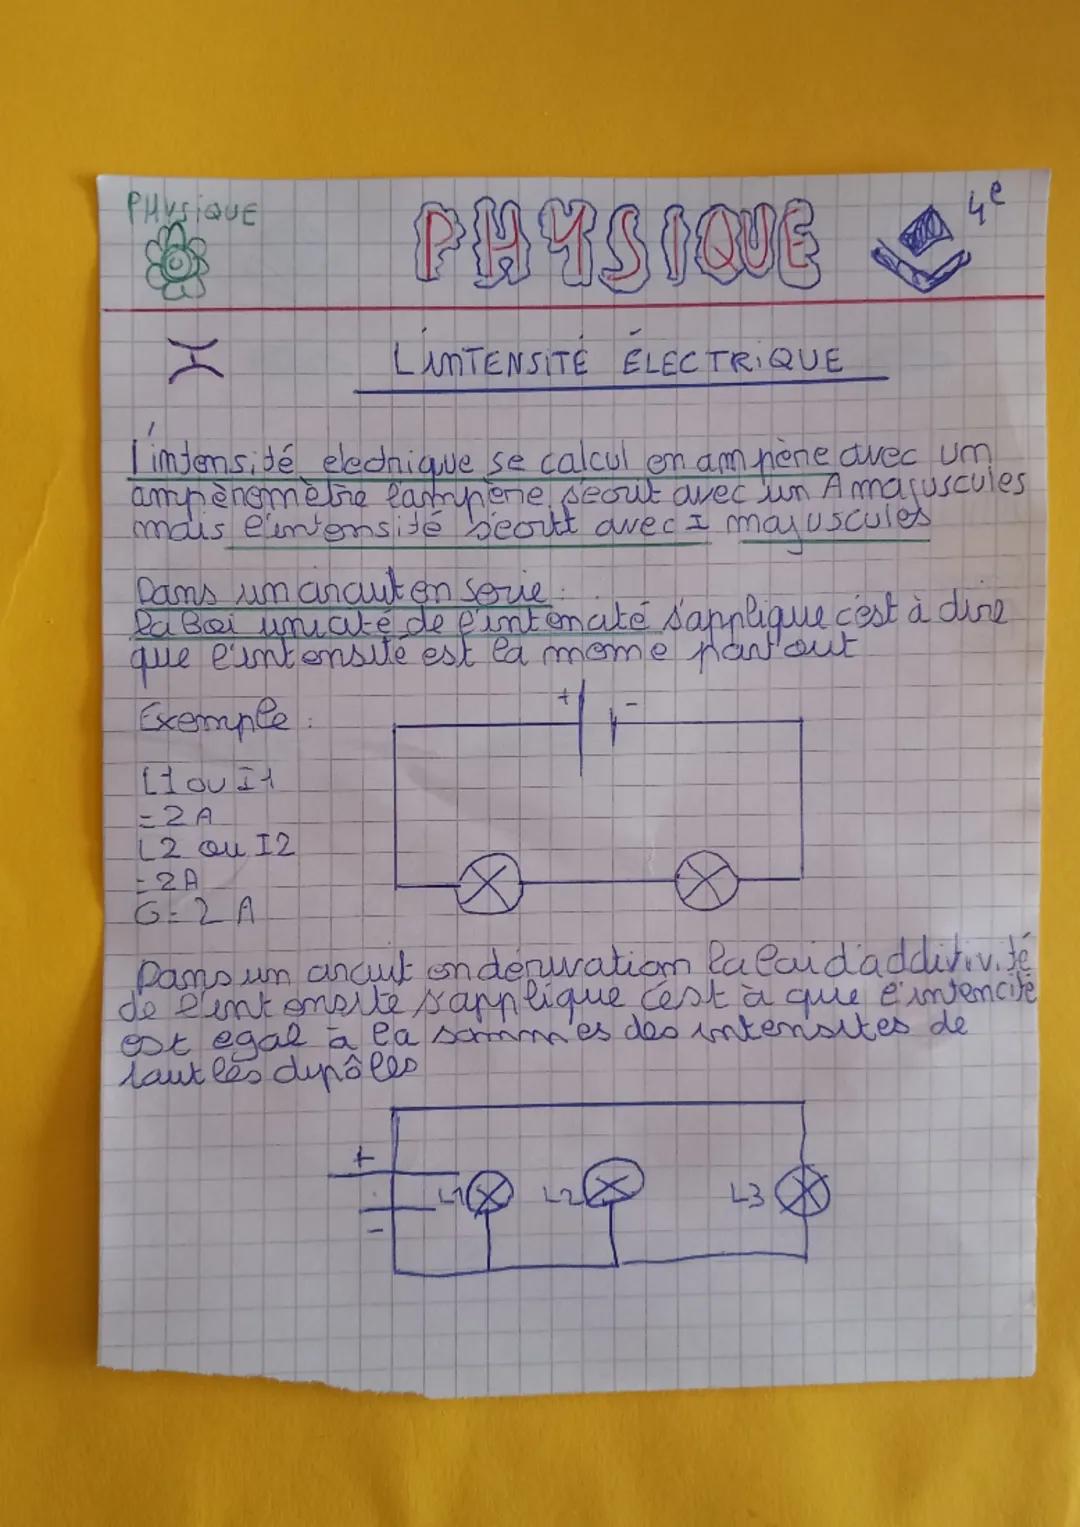 PHYSIQUE
PHYSIQUE
4e
I
L'INTENSITÉ ÉLECTRIQUE
l'intensité electrique se calcul en ampère avec um
ampèremètre l'ampère s'ecrit avec un A majuscules
mais l'intensité s'ecrit avec I majuscules
Dans un circuit en serie :
La loi unicité de l'intencité s'applique c'est à dire
que l'intensité est la meme partout
Exemple :
+ -
L1 ou I1
= 2 A
L2 ou I2
= 2A
G = 2 A
Dans un circuit en dérivation la loi d'additivité
de l'intensite s'applique c'est à que l'intencité
est egal à la sommes des intensites de
tout les dipôles
+
L1 L2 L3
-